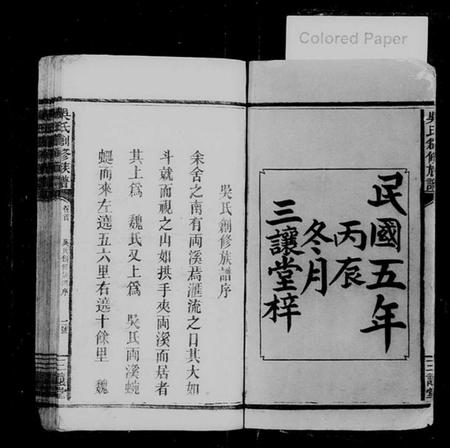 Colored Paper
吳氏創修族譜
民國五年
丙辰
冬月
三讓堂梓
吳氏創修族譜序
余舍之南有兩溪焉滙流之口其大如
斗就而視之山如拱手夾兩溪而居者
其上爲 魏氏又上爲 吳氏兩溪蜿
蜒而來左遶五六里右遶十餘里 魏
吳氏創修族譜
卷首
吳氏創修族譜序
三讓堂